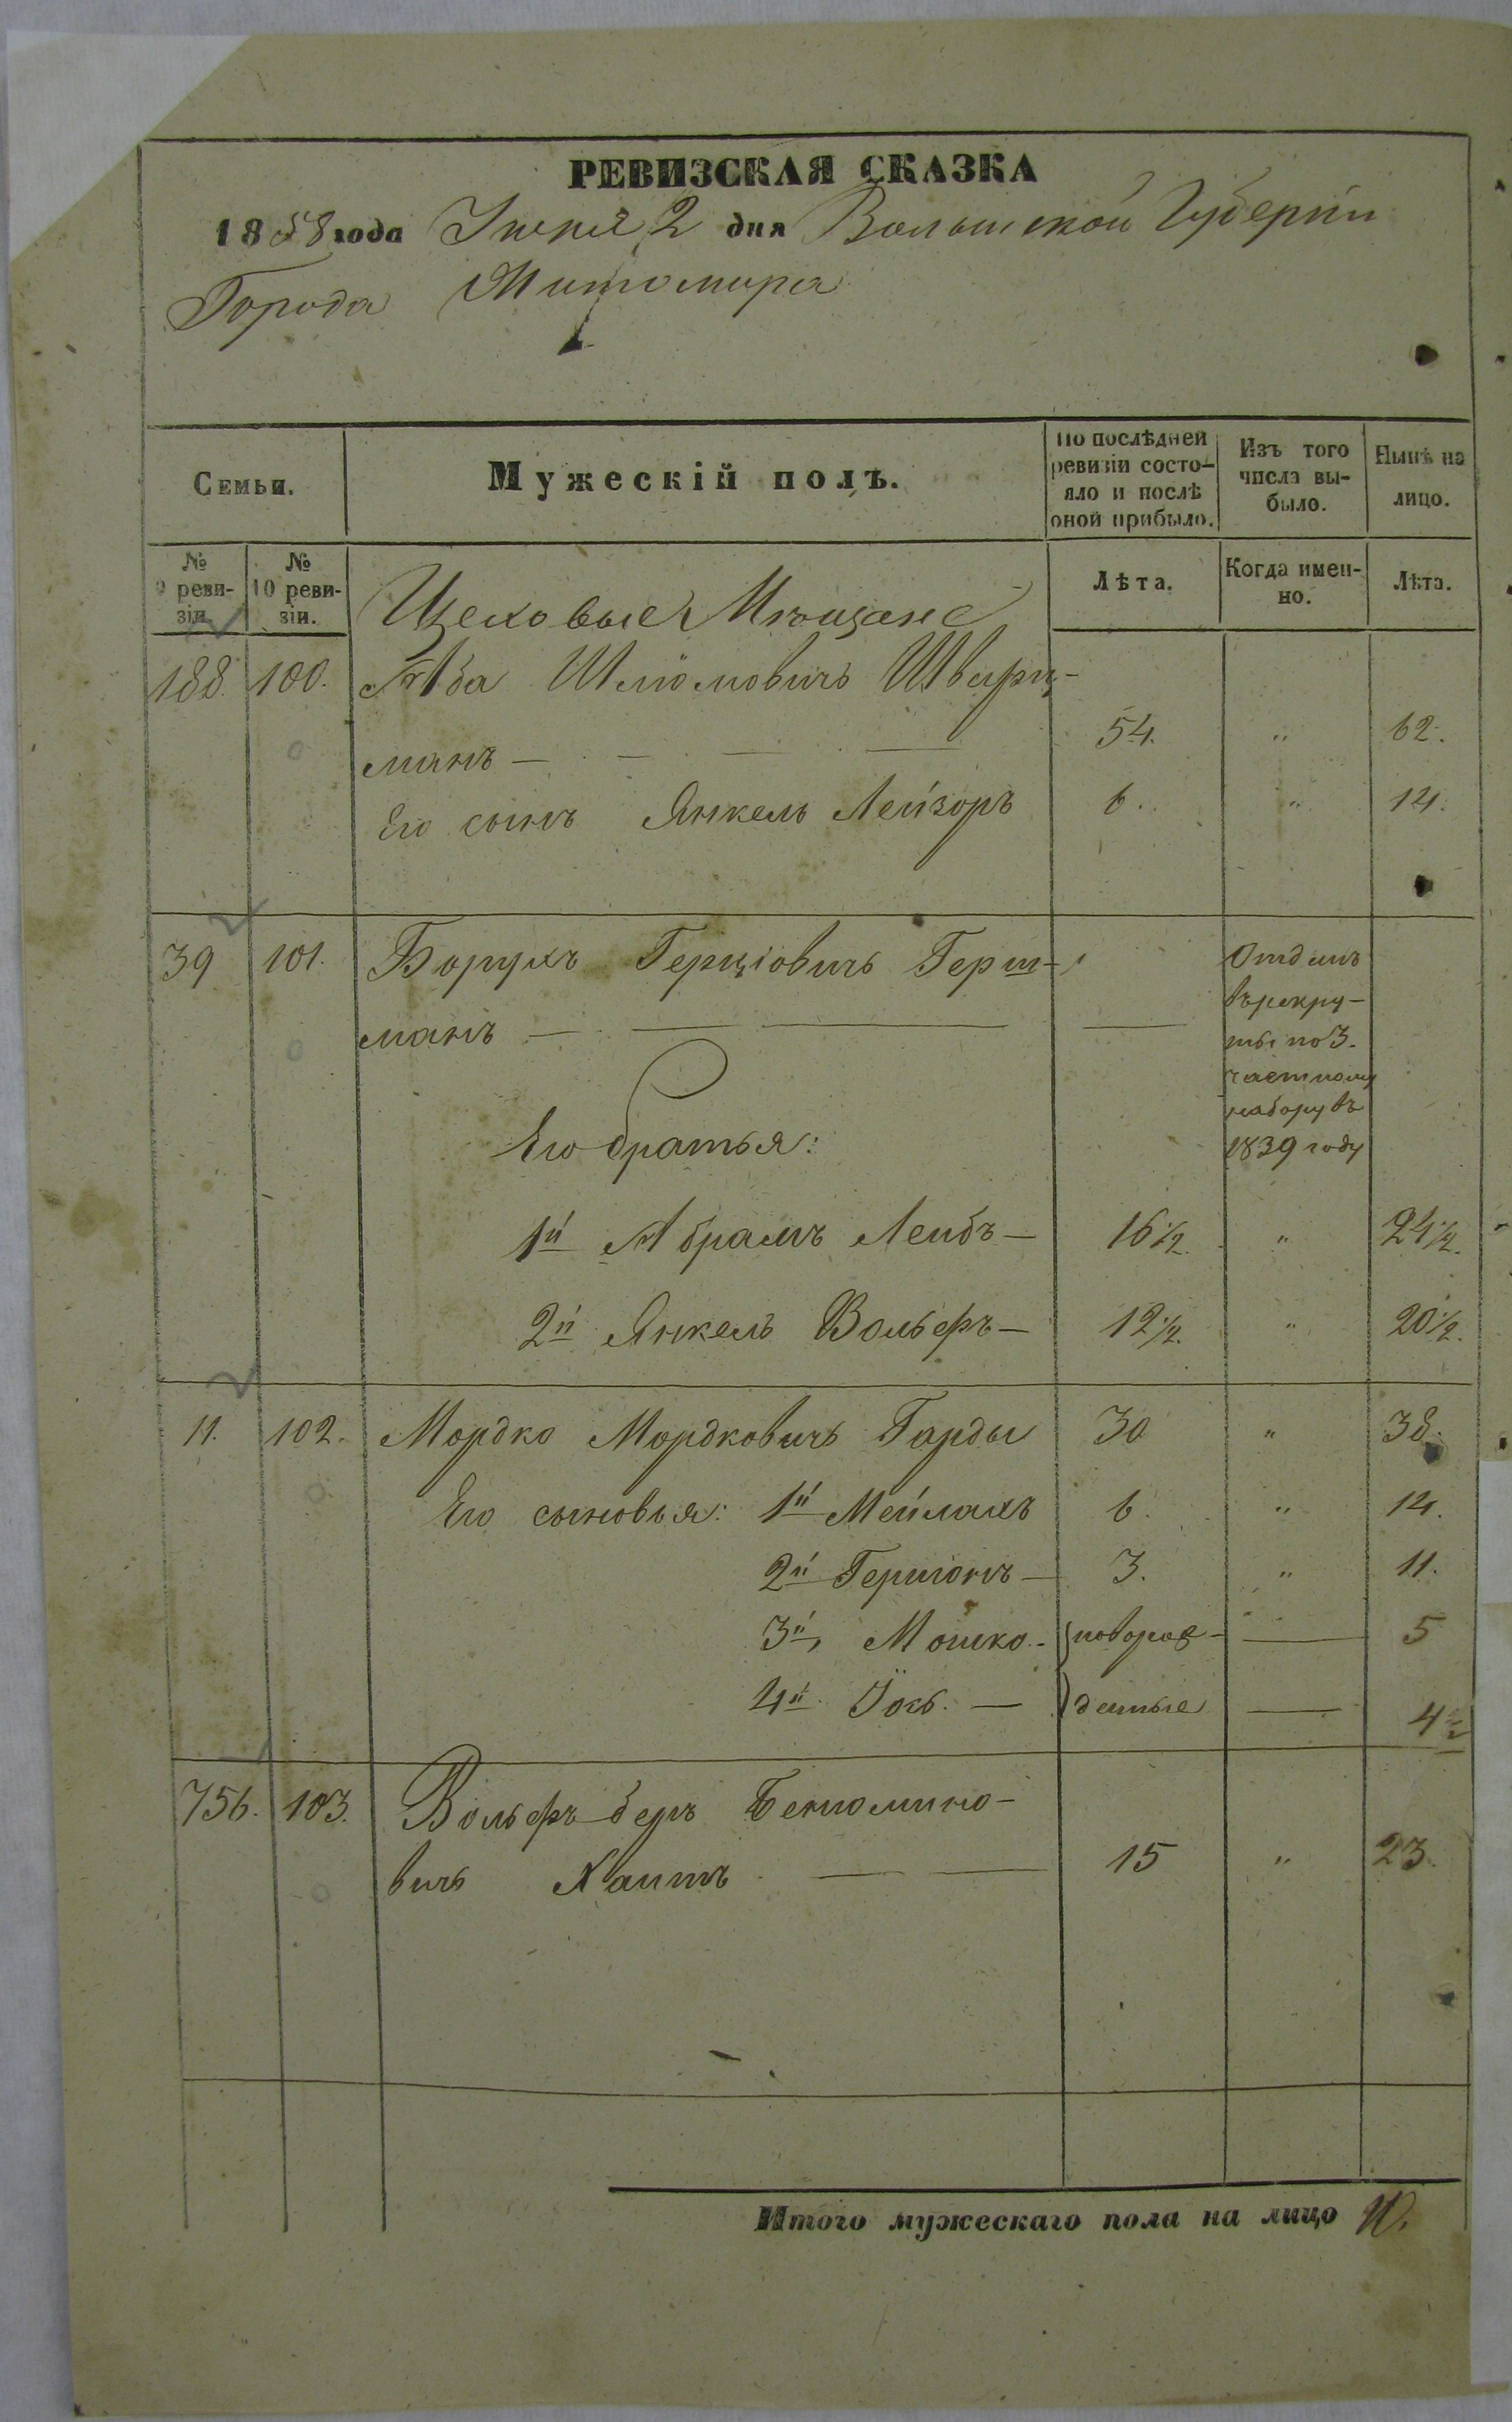 РЕВИЗСКАЯ СКАЗКА
1858 года Іюня 2 дня Волынской Губерніи
Города Житомира
Семьи.
Мужескій полъ.
По послѣдней
ревизіи состо-
яло и послѣ
оной прибыло.
Изъ того
числа вы-
было.
Нынѣ на
лицо.
№
9 реви-
зіи.
№
10 реви-
зіи.
Цеховые Мѣщане
Лѣта.
Когда имен-
но.
Лѣта.
188. 100. Аба Шліомовичъ Шварц-
манъ — 54. " 62.
Его сынъ Янкель Лейзоръ 6. " 14.
39 101. Борухъ Герціовичъ Герш-
манъ —
Отданъ
въ рекру-
ты по 3.
частному
набору въ
1839 году
Его братья:
1й Абрамъ Лейбъ — 16 1/2. " 24 1/2.
2й Янкель Вольфъ — 12 1/2. " 20 1/2.
11. 102. Мордко Мордковичъ Гарды 30 " 38.
Его сыновья: 1й Мейлахъ 6. " 14.
2й Гершонъ — 3. " 11.
3й, Мошко - новорож- — 5
4й — денные — 4 1/2
756. 103. Вольфъ-беръ Беніомино-
вичъ Хаитъ — 15 " 23.
Итого мужескаго пола на лицо 10.